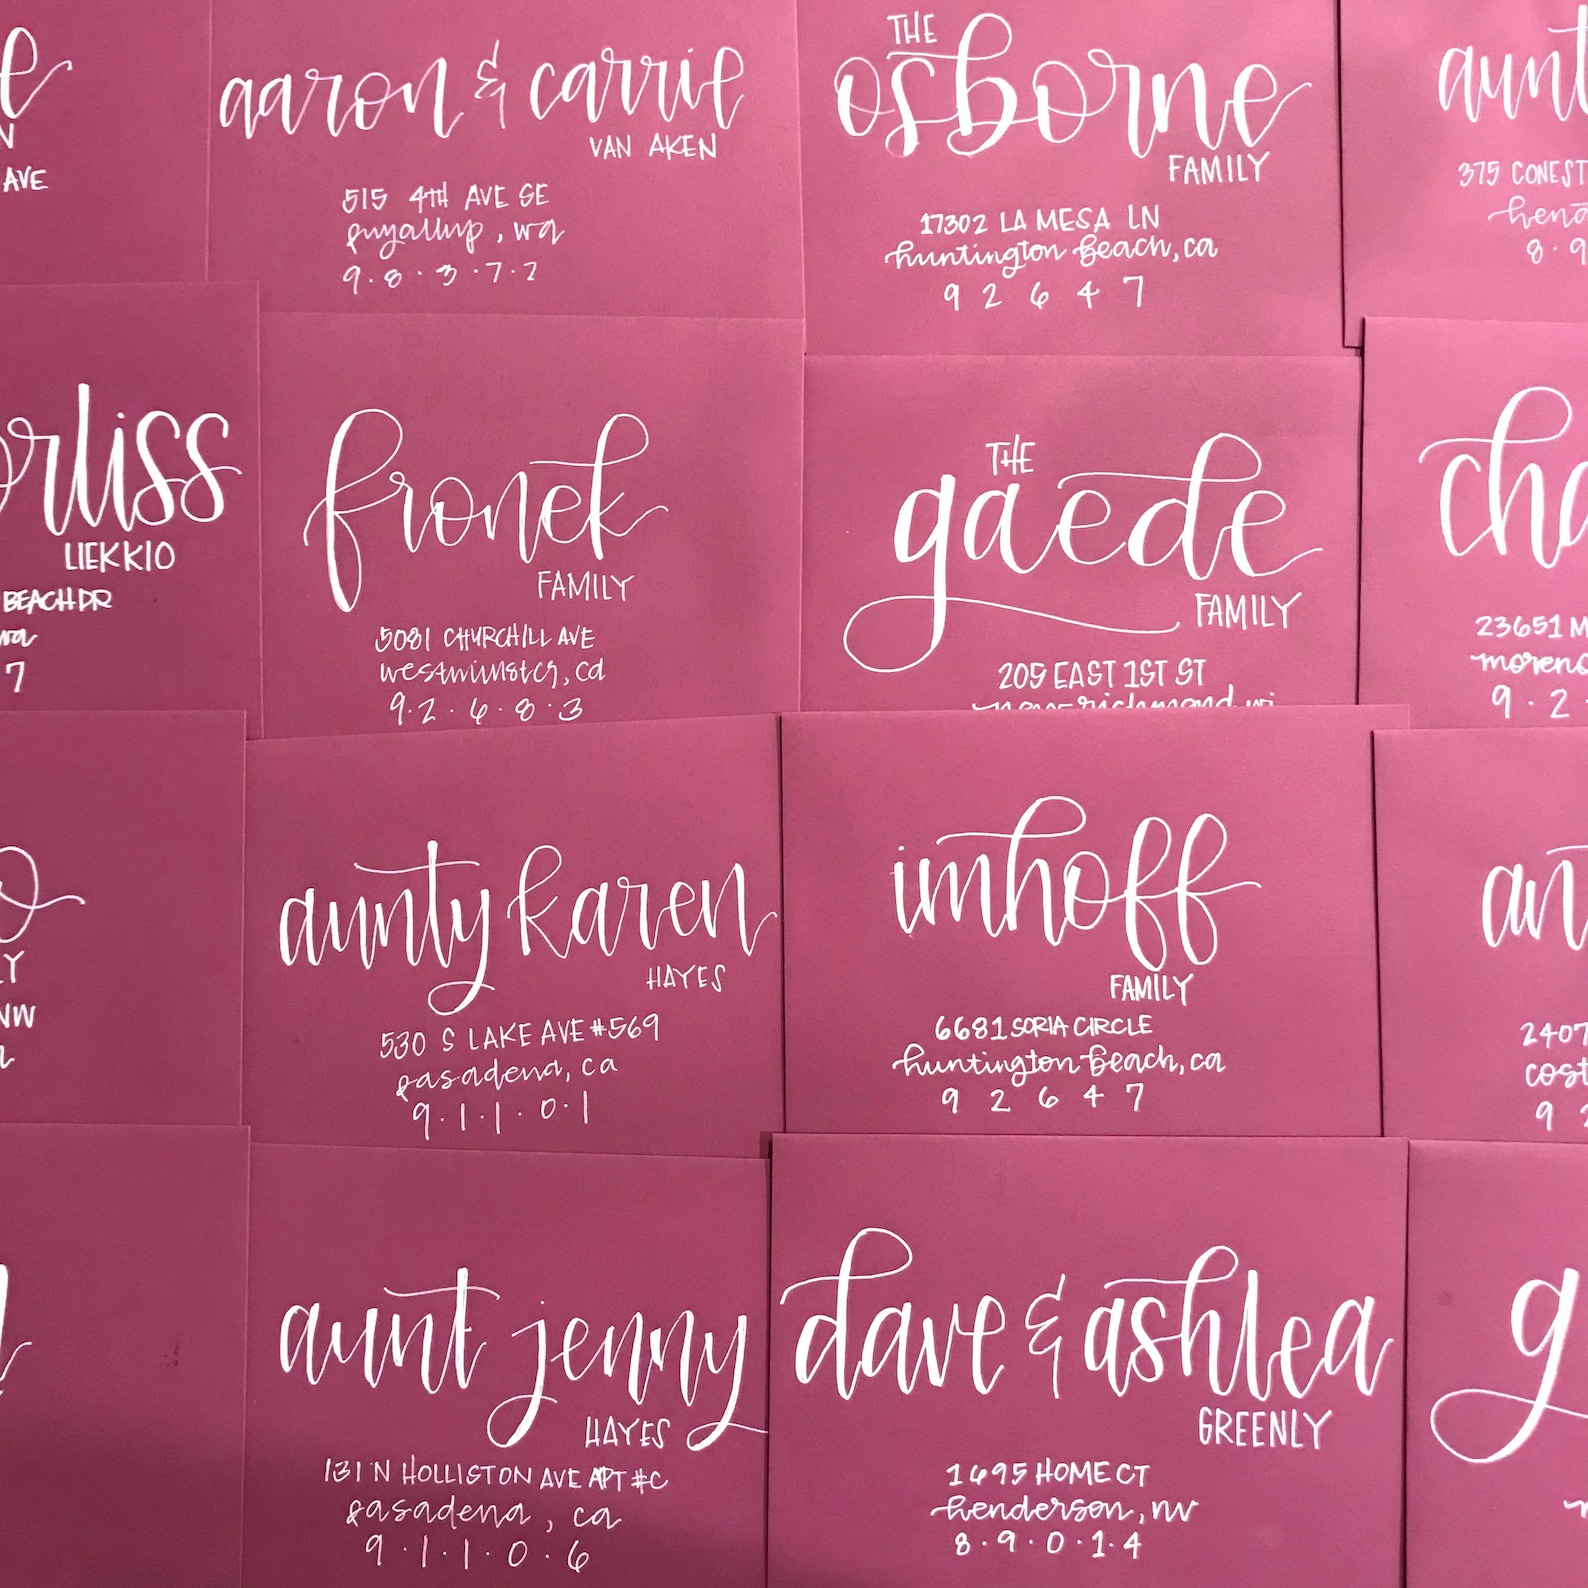 AVE
aaron & carrie
VAN AKEN
515 4TH AVE SE
puyallup, wa
9·8·3·7·2
THE
osborne
FAMILY
17302 LA MESA LN
huntington beach, ca
9 2 6 4 7
aunt
375 CONEST
hend
8·9
rliss
LIEKKIO
BEACH DR
wa
7
fronek
FAMILY
5081 CHURCHILL AVE
westminster, ca
9·2·6·8·3
THE
gaede
FAMILY
205 EAST 1ST ST
new richmond, wi
cha
23651 M
moreno
9·2·
LY
NW
aunty karen
HAYES
530 S LAKE AVE #569
pasadena, ca
9·1·1·0·1
imhoff
FAMILY
6681 SORIA CIRCLE
huntington beach, ca
9 2 6 4 7
an
2407
cost
9 2
aunt jenny
HAYES
131 N HOLLISTON AVE APT #C
pasadena, ca
9·1·1·0·6
dave & ashlea
GREENLY
1695 HOME CT
henderson, nv
8·9·0·1·4
g